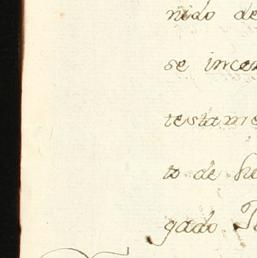 nido de
se incen
testame
to de he
gado